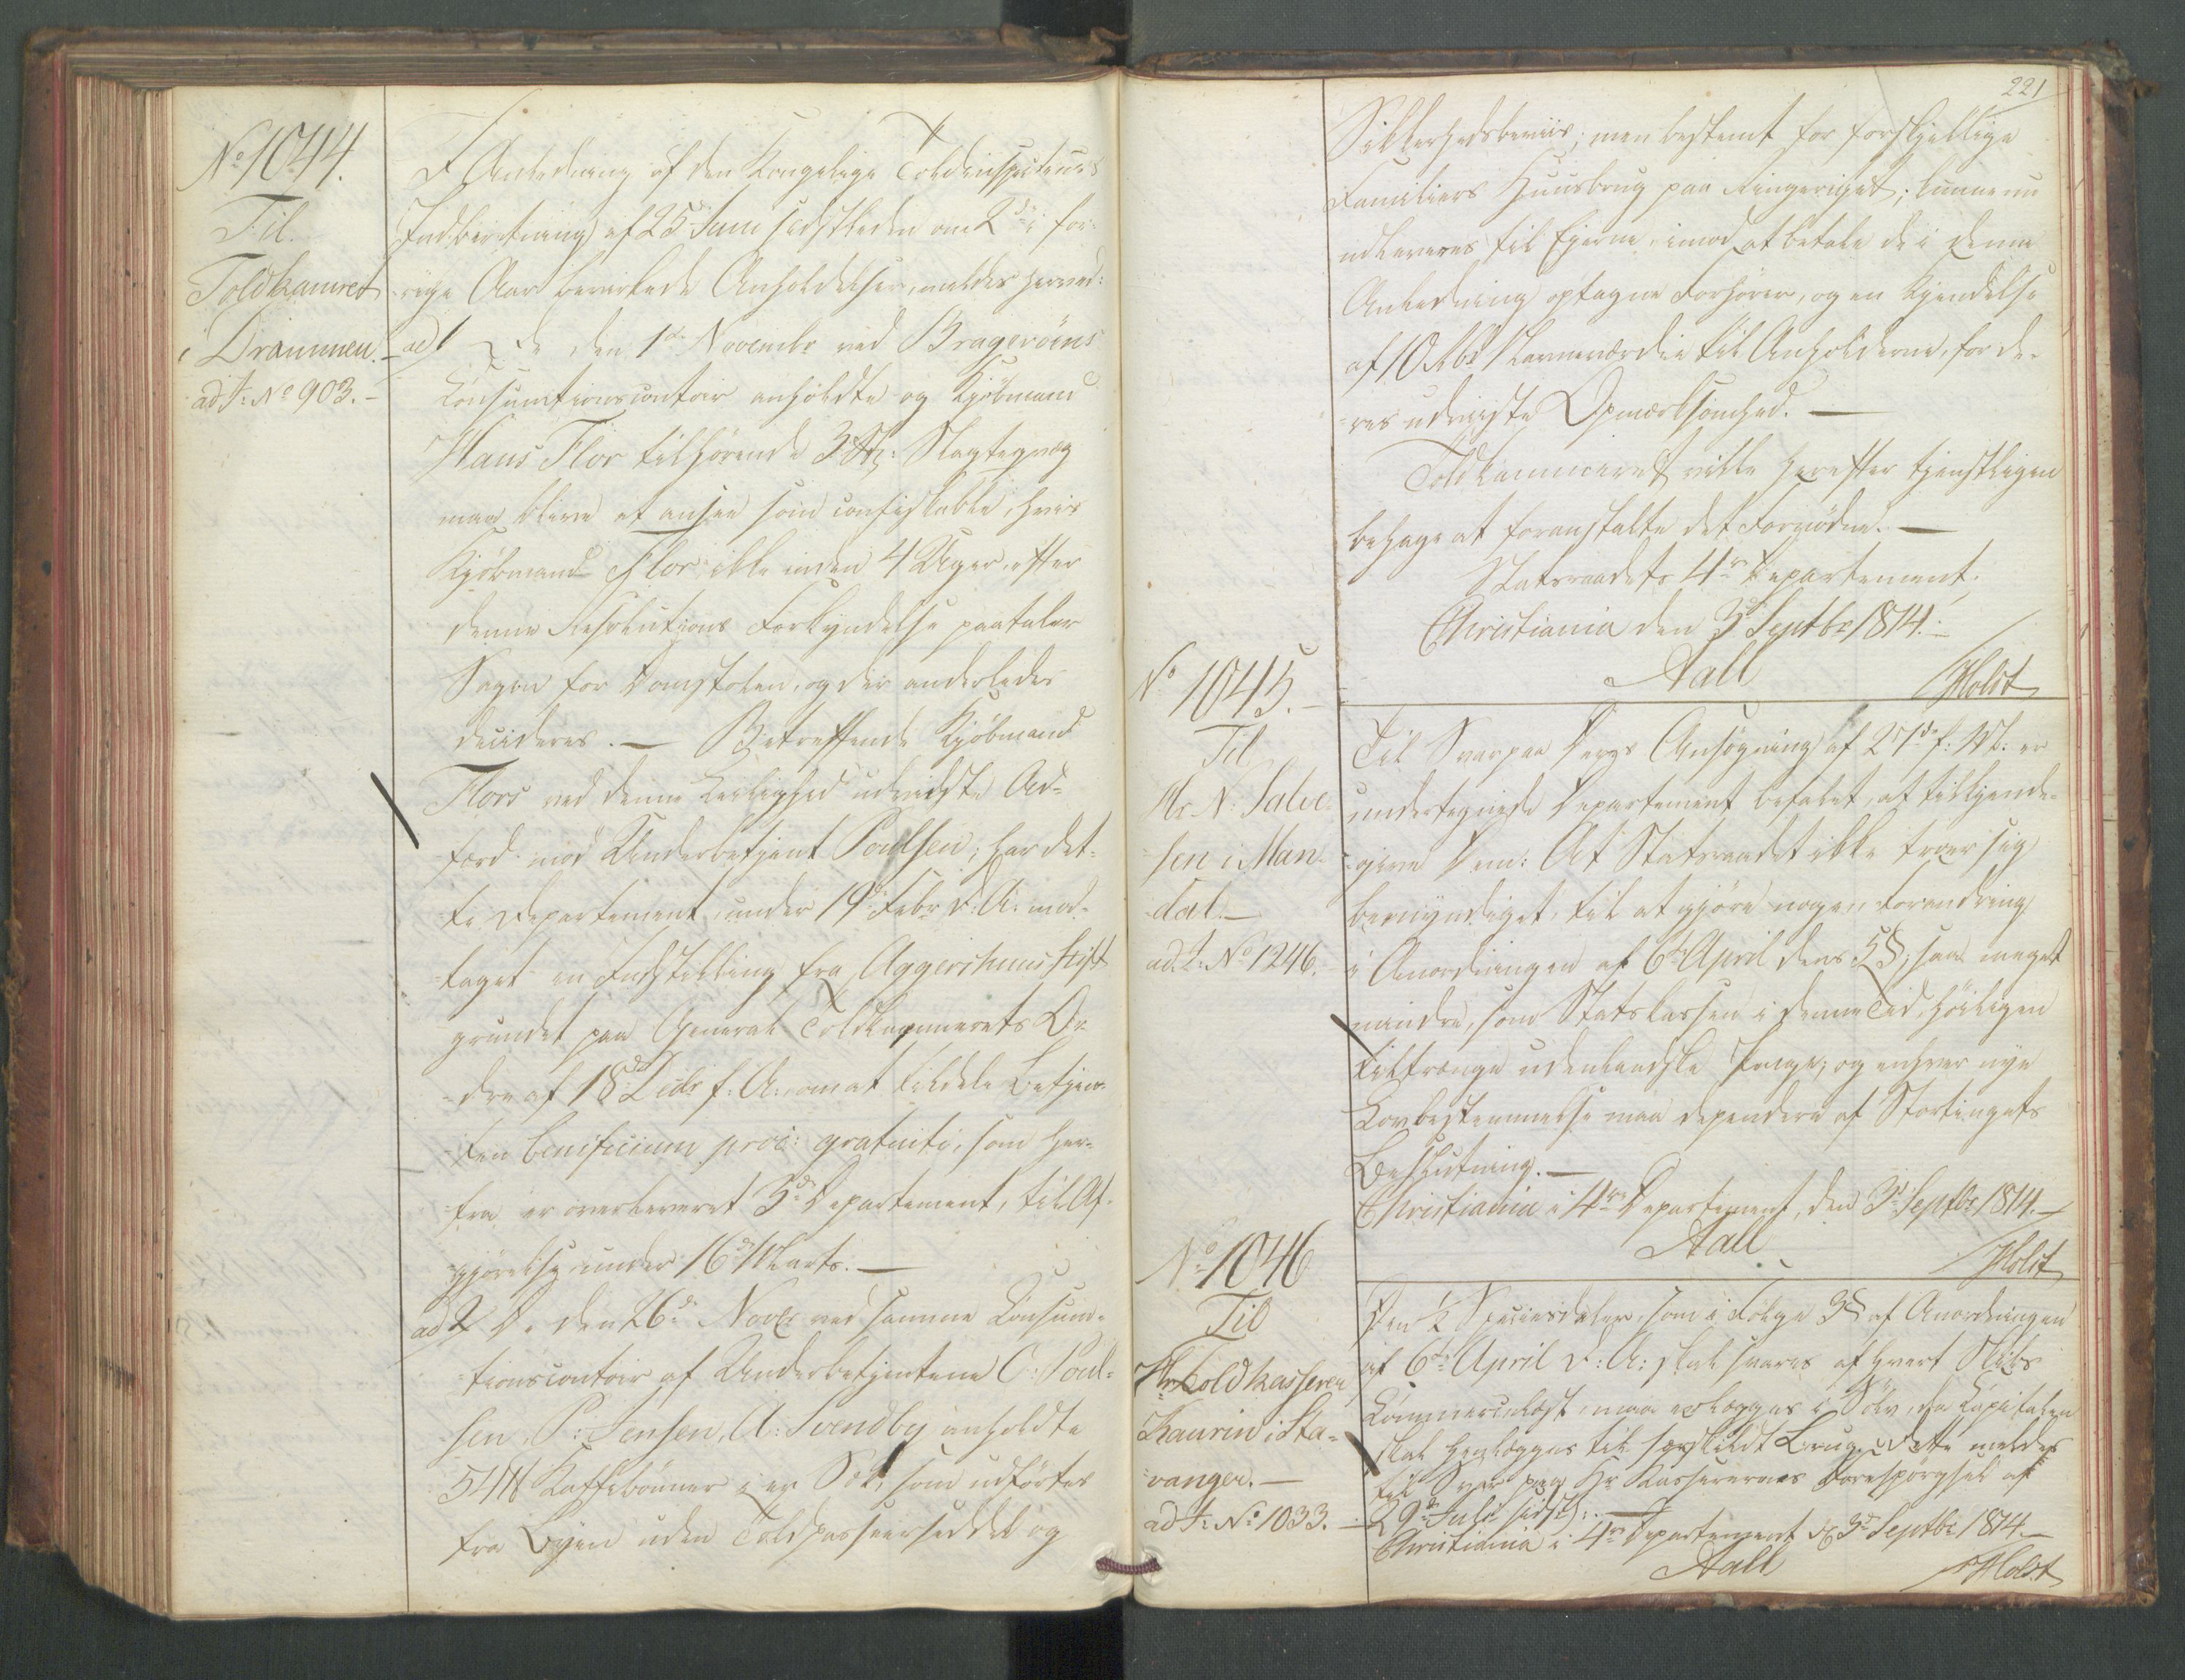 No 1044.
Til
Toldkamret
i Drammen.
ad J: No 903.-
I Anledning af den Kongelige Toldinspecteurs
Indberetning af 25de Juni sidstleden om 2de i for-
rige Aar bevirkede Anholdelser, meldes herved:
ad 1 De den 1ste Novembr ved Bragerøens
Consumtionscontoir anholdte og Kjøbmand
Hans Flor tilhørende 3 St: Slagteqvæg
maa blive at ansee som confiskable, hvis
Kjøbmand Flor ikke inden 4 Uger efter
denne Resolutions Forkyndelse paataler
Sagen for Domstolen, og der anderledes
decideres. — Betreffende Kjøbmand
Flors ved denne Leilighed udviiste Ad-
færd mod Underbetjent Poulsen, har det-
te Departement under 19de Febr d: A: mod-
taget en Indstilling fra Aggershuus Stift
grundet paa General Toldkammerets Or-
dre af 18de Decbr f: A: om at tildele Betjen-
ten beneficium proc: gratuiti, som her-
fra er overleveret 3de Departement, til Af-
gjørelse under 16de Marts. —
ad 2 De den 26de Novbr ved samme Consum-
tionscontoir af Underbetjentene C: Poul-
sen, P: Jensen, A: Svendby anholdte
54 ℔ Kaffebønner i en Sæk, som udførtes
fra Byen uden Toldpasseerseddel og
221
Sikkerhedsbeviis; men bestemt for forskjellige
Familiers Huusbrug paa Ringeriget; kunne nu
udleveres til Ejerne, imod at betale de i denne
Anledning optagne Forhører, og en Kjendelse
af 10 Rbd Navneværdie til Anholderne, for de-
res udviiste Opmærksomhed. —
Toldkammeret ville herefter tjenstligen
behage at foranstalte det Fornødne. —
Statsraadets 4de Departement.
Christiania den 3de Septbr 1814.
Aall
Holst
No 1045.
Til
Hr. N. Salve-
sen i Man-
dal. —
ad J: No 1246.
Til Svar paa Deres Ansøgning af 27de f: M: er
undertegnede Departement befalet, at tilkjende-
give Dem: At Statsraadet ikke troer sig
bemyndiget, til at gjøre nogen Forandring
i Anordningen af 6te April dens 5 §, saa meget
mindre, som Statskassen i denne Tid høiligen
tiltrænge udenlandske Penge; og enhver nye
Lovbestemmelse maa dependere af Stortingets
Beslutning. —
Christiania i 4de Departement, den 3de Septbr 1814. —
Aall
Holst
No 1046
Til
Hr. Toldkasserer
Kaurin i Sta-
vanger. —
ad J: No 1033. —
Den ½ Speciesdaler, som i Følge 3 § af Anordningen
af 6te April d: A: skal svares af hvert Skibs
Commercelæst, maa erlægges i Sølv, da Capitalen
skal henlægges til særskildt Brug. Dette meldes
til Svar paa Hr Kassererens Forespørgsel af
29de Juli sidstl: —
Christiania i 4de Departement d. 3de Septbr 1814. —
Aall
Holst